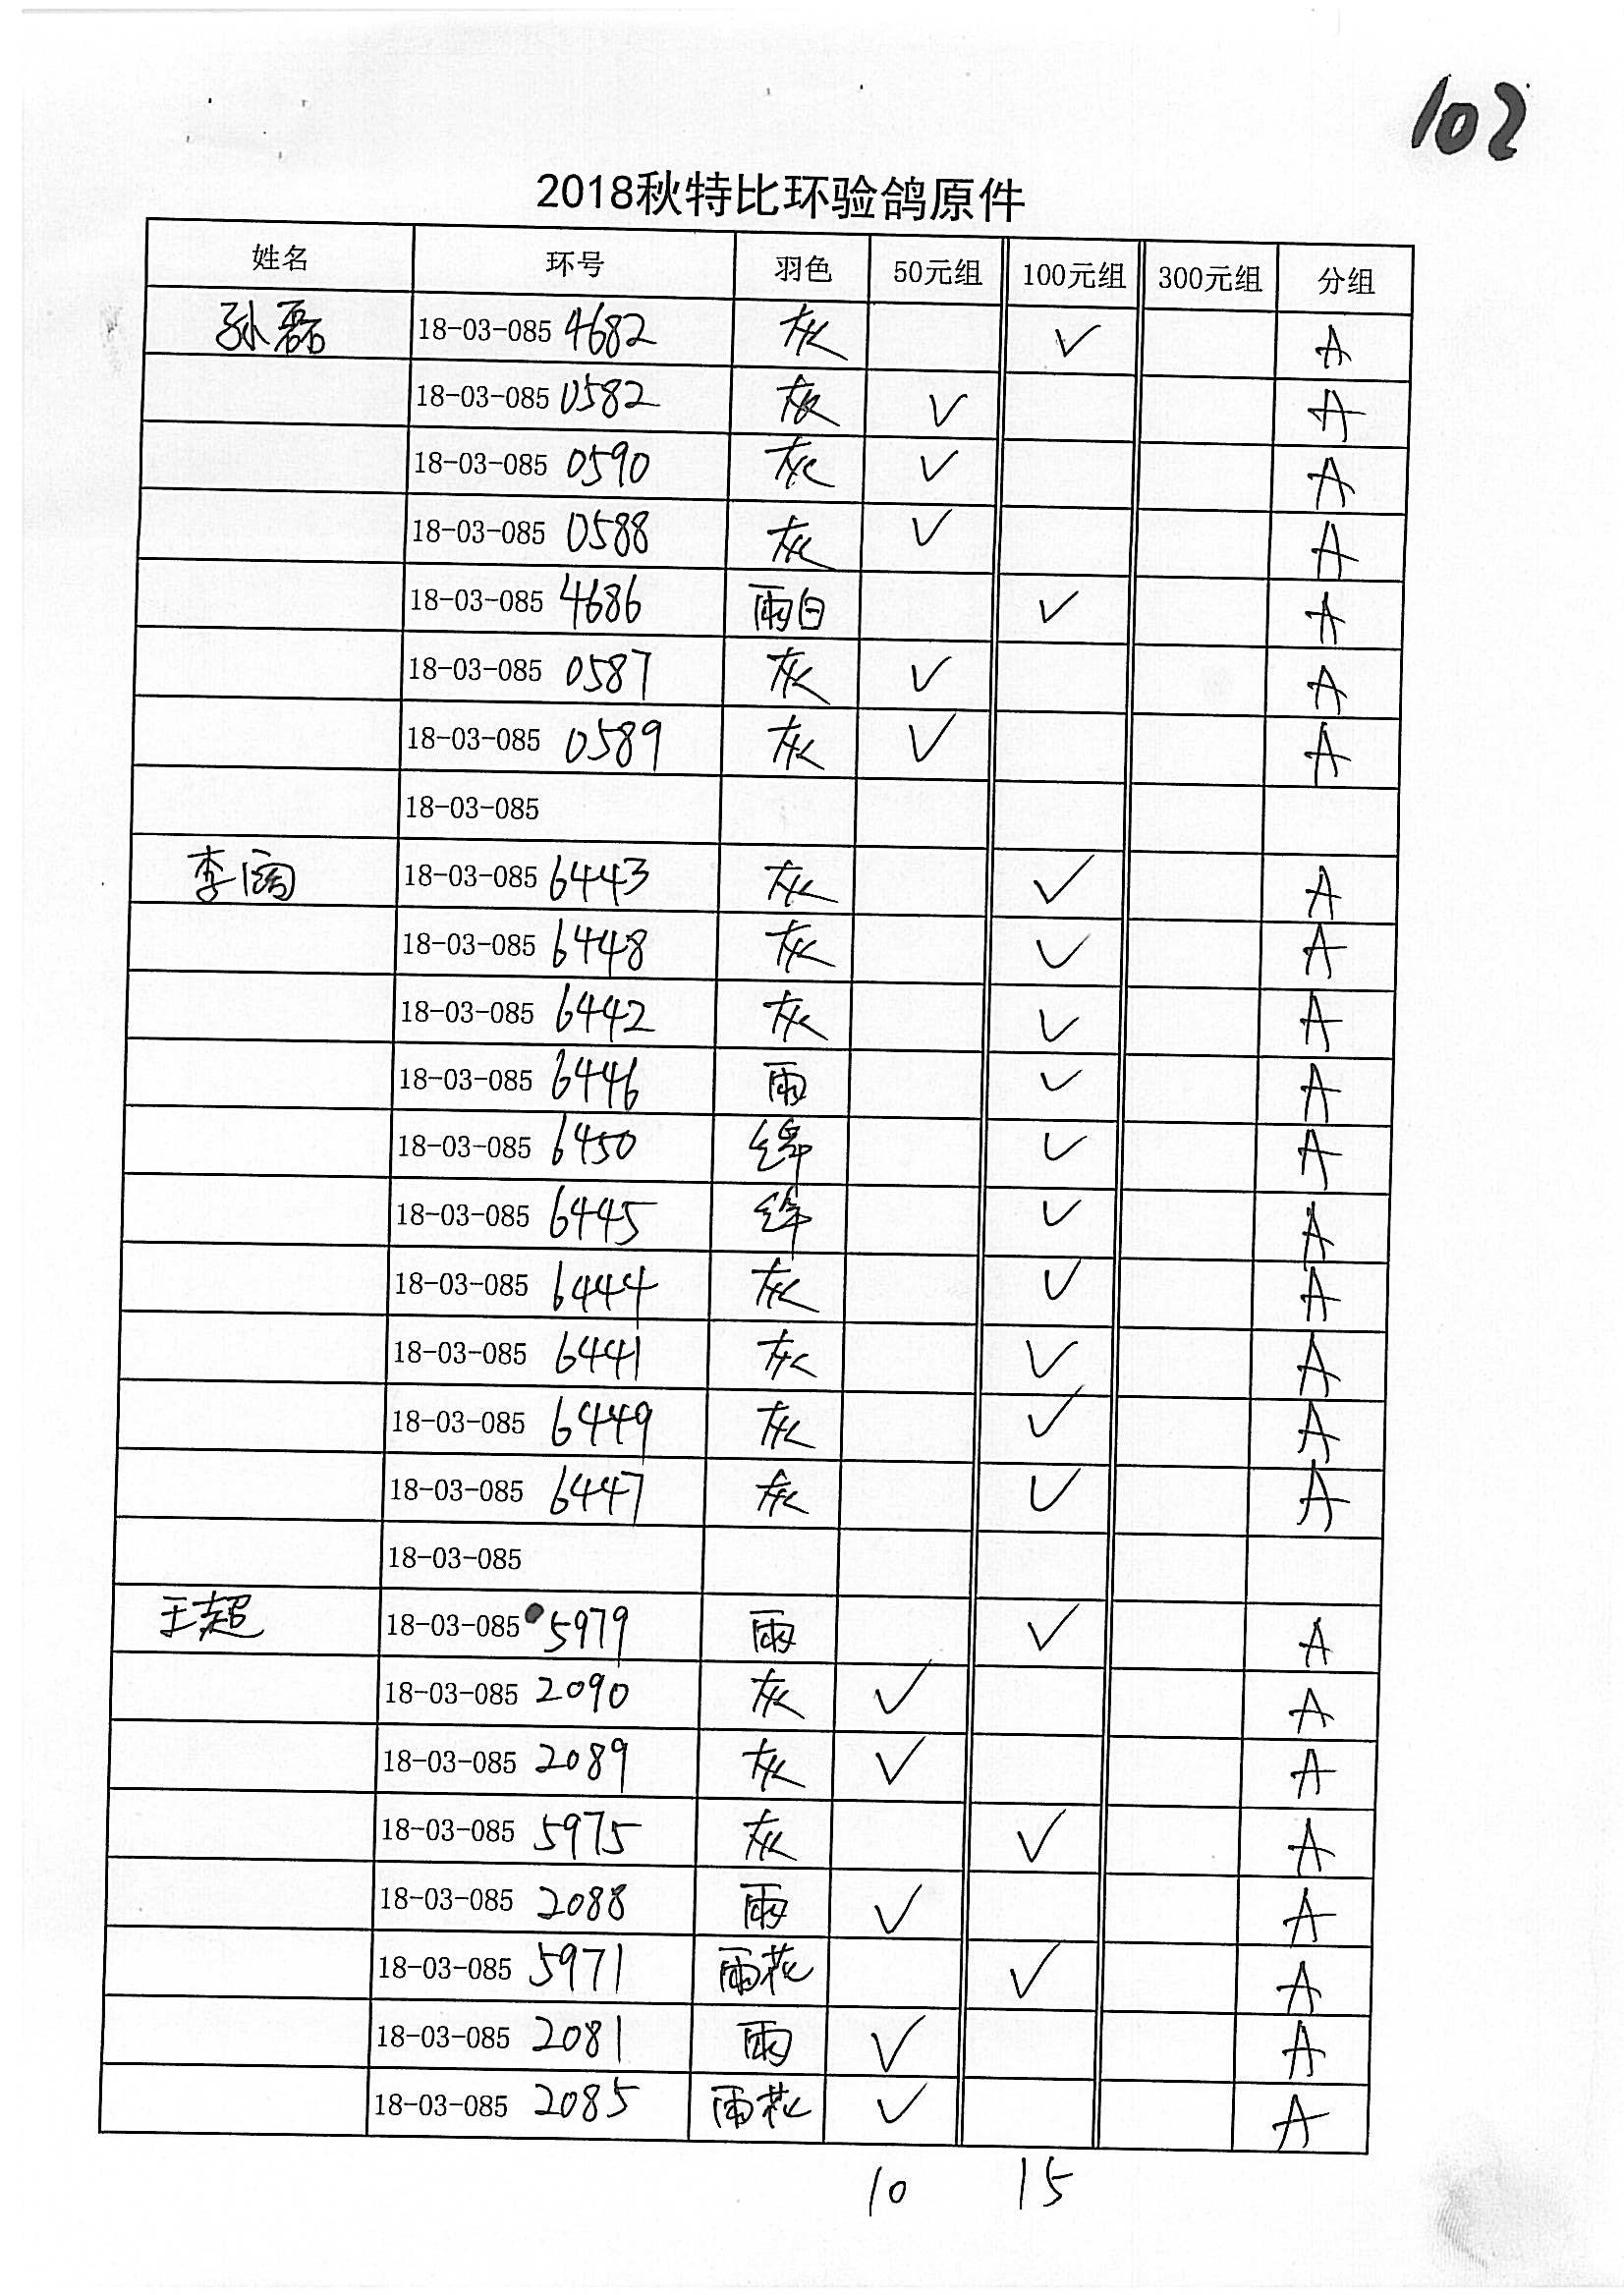 102
2018秋特比环验鸽原件
姓名 环号 羽色 50元组 100元组 300元组 分组
孙磊 18-03-085 4682 灰 ✓ A
18-03-085 0582 灰 ✓ A
18-03-085 0590 灰 ✓ A
18-03-085 0588 灰 ✓ A
18-03-085 4686 雨白 ✓ A
18-03-085 0587 灰 ✓ A
18-03-085 0589 灰 ✓ A
18-03-085
李 18-03-085 6443 灰 ✓ A
18-03-085 6448 灰 ✓ A
18-03-085 6442 灰 ✓ A
18-03-085 6446 雨 ✓ A
18-03-085 6450 绛 ✓ A
18-03-085 6445 绛 ✓ A
18-03-085 6444 灰 ✓ A
18-03-085 6441 灰 ✓ A
18-03-085 6449 灰 ✓ A
18-03-085 6447 灰 ✓ A
18-03-085
王超 18-03-085 5979 雨 ✓ A
18-03-085 2090 灰 ✓ A
18-03-085 2089 灰 ✓ A
18-03-085 5975 灰 ✓ A
18-03-085 2088 雨 ✓ A
18-03-085 5971 雨花 ✓ A
18-03-085 2081 雨 ✓ A
18-03-085 2085 雨花 ✓ A
10 15